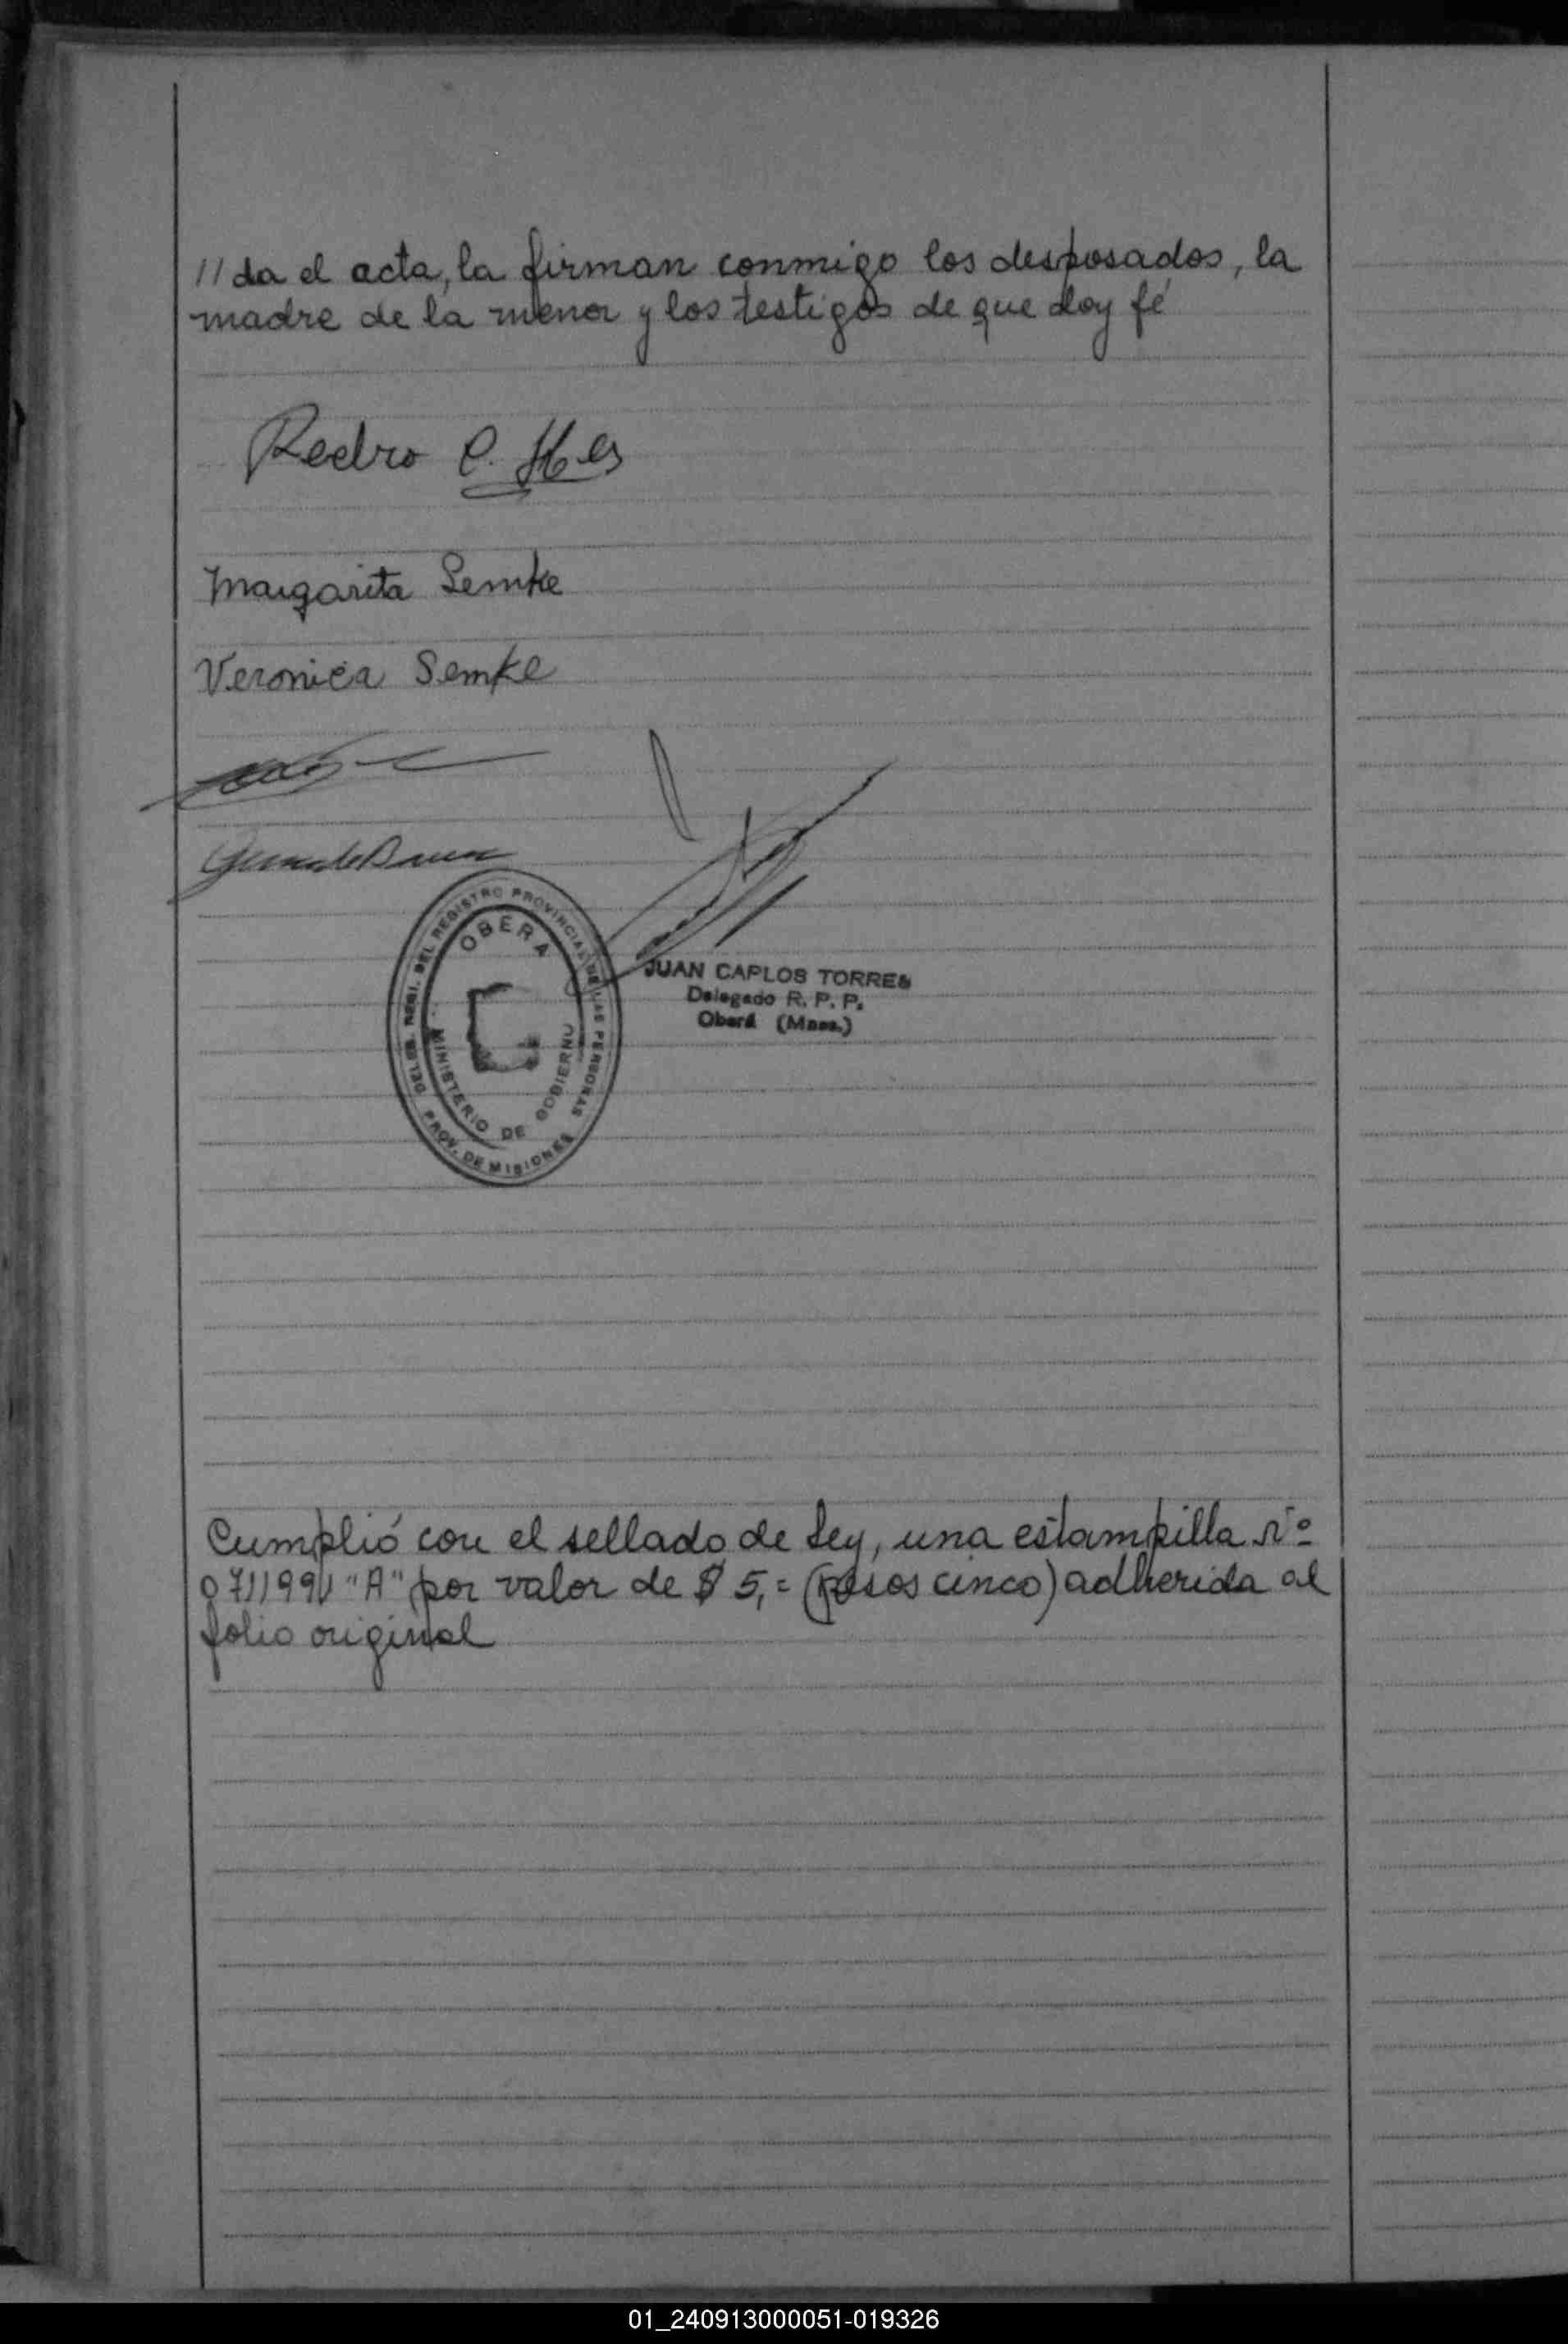 //da el acta, la firman conmigo los desposados, la
madre de la menor y los testigos de que doy fé
Pedro C.
Margarita Semke
Veronica Semke
OBERA
DELEG. DEL REGISTRO PROVINCIAL DE LAS PERSONAS
MINISTERIO DE GOBIERNO
PROV. DE MISIONES
JUAN CARLOS TORRES
Delegado R. P. P.
Oberá (Mnes.)
Cumplió con el sellado de Ley, una estampilla Nº
"A" por valor de $ 5,= (pesos cinco) adherida al
folio original
01_240913000051-019326